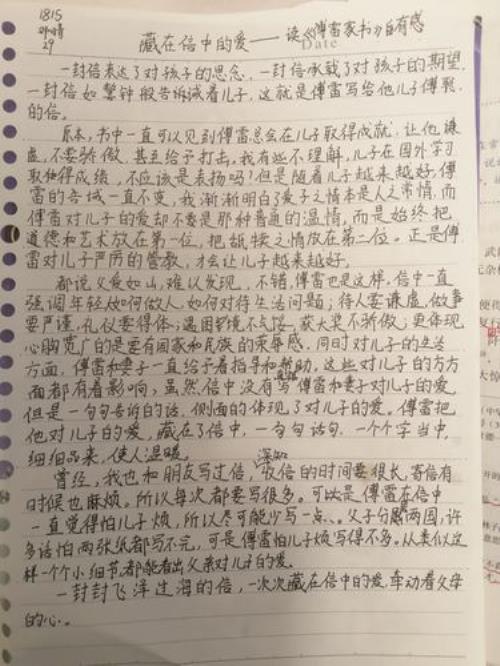 1815
29
藏在信中的爱——读《傅雷家书》有感
Date
一封信表达了对孩子的思念,一封信承载了对孩子的期望,
一封信如警钟般告诉诫着儿子,这就是傅雷写给他儿子傅聪
的信。
原本,书中一直可以见到傅雷总会在儿子取得成就,让他谦
虚,不要骄傲,甚至给予打击,我有些不理解,儿子在国外学习
取得成绩,不应该是表扬吗?但是随着儿子越来越好,傅
雷的告诫一直不变,我渐渐明白了爱子之情本是人之常情,而
傅雷对儿子的爱却不是那种普通的温情,而是始终把
道德和艺术放在第一位,把舐犊之情放在第二位。正是傅
雷对儿子严厉的管教,才会让儿子越来越好。
都说父爱如山,难以发现,不错,傅雷也是这样,信中一直
强调年轻人如何做人,如何对待生活问题;待人要谦虚,做事
要严谨,礼仪要得体;遇困境不气馁,获大奖不骄傲;更体现
心胸宽广的是要有国家和民族的荣辱感,同时对儿子的生活
方面,傅雷和妻子一直给予着指导和帮助,这些对儿子的方方
面都有着影响,虽然信中没有写傅雷和妻子对儿子的爱
但是一句句告诉的话,侧面的体现了对儿子的爱。傅雷把
他对儿子的爱,藏在了信中,一句句话句,一个个字当中,
细细品来,使人温暖。
深知
曾经,我也和朋友写过信,收信的时间要很长,寄信有
时候也麻烦。所以每次都要写很多。可是傅雷在信中
一直觉得怕儿子烦,所以尽可能少写一点、。父子分隔两国,许
多话怕两张纸都写不完,可是傅雷怕儿子烦写得不多。从类似这
样一个个小细节,都能看出父亲对儿子的爱。
一封封飞洋过海的信,一次次藏在信中的爱,牵动着父母
的心。